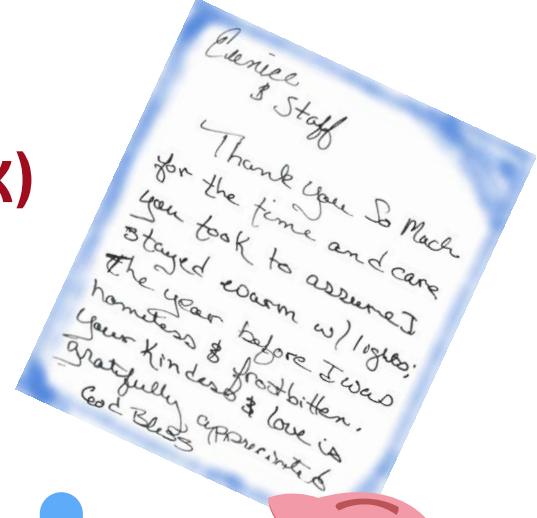 x)
Eunice
& Staff
Thank you So Much
for the time and care
you took to assure I
stayed warm w/ lights;
the year before I was
homeless & frostbitten.
your Kindess & love is
gratefully appreciated
God Bless